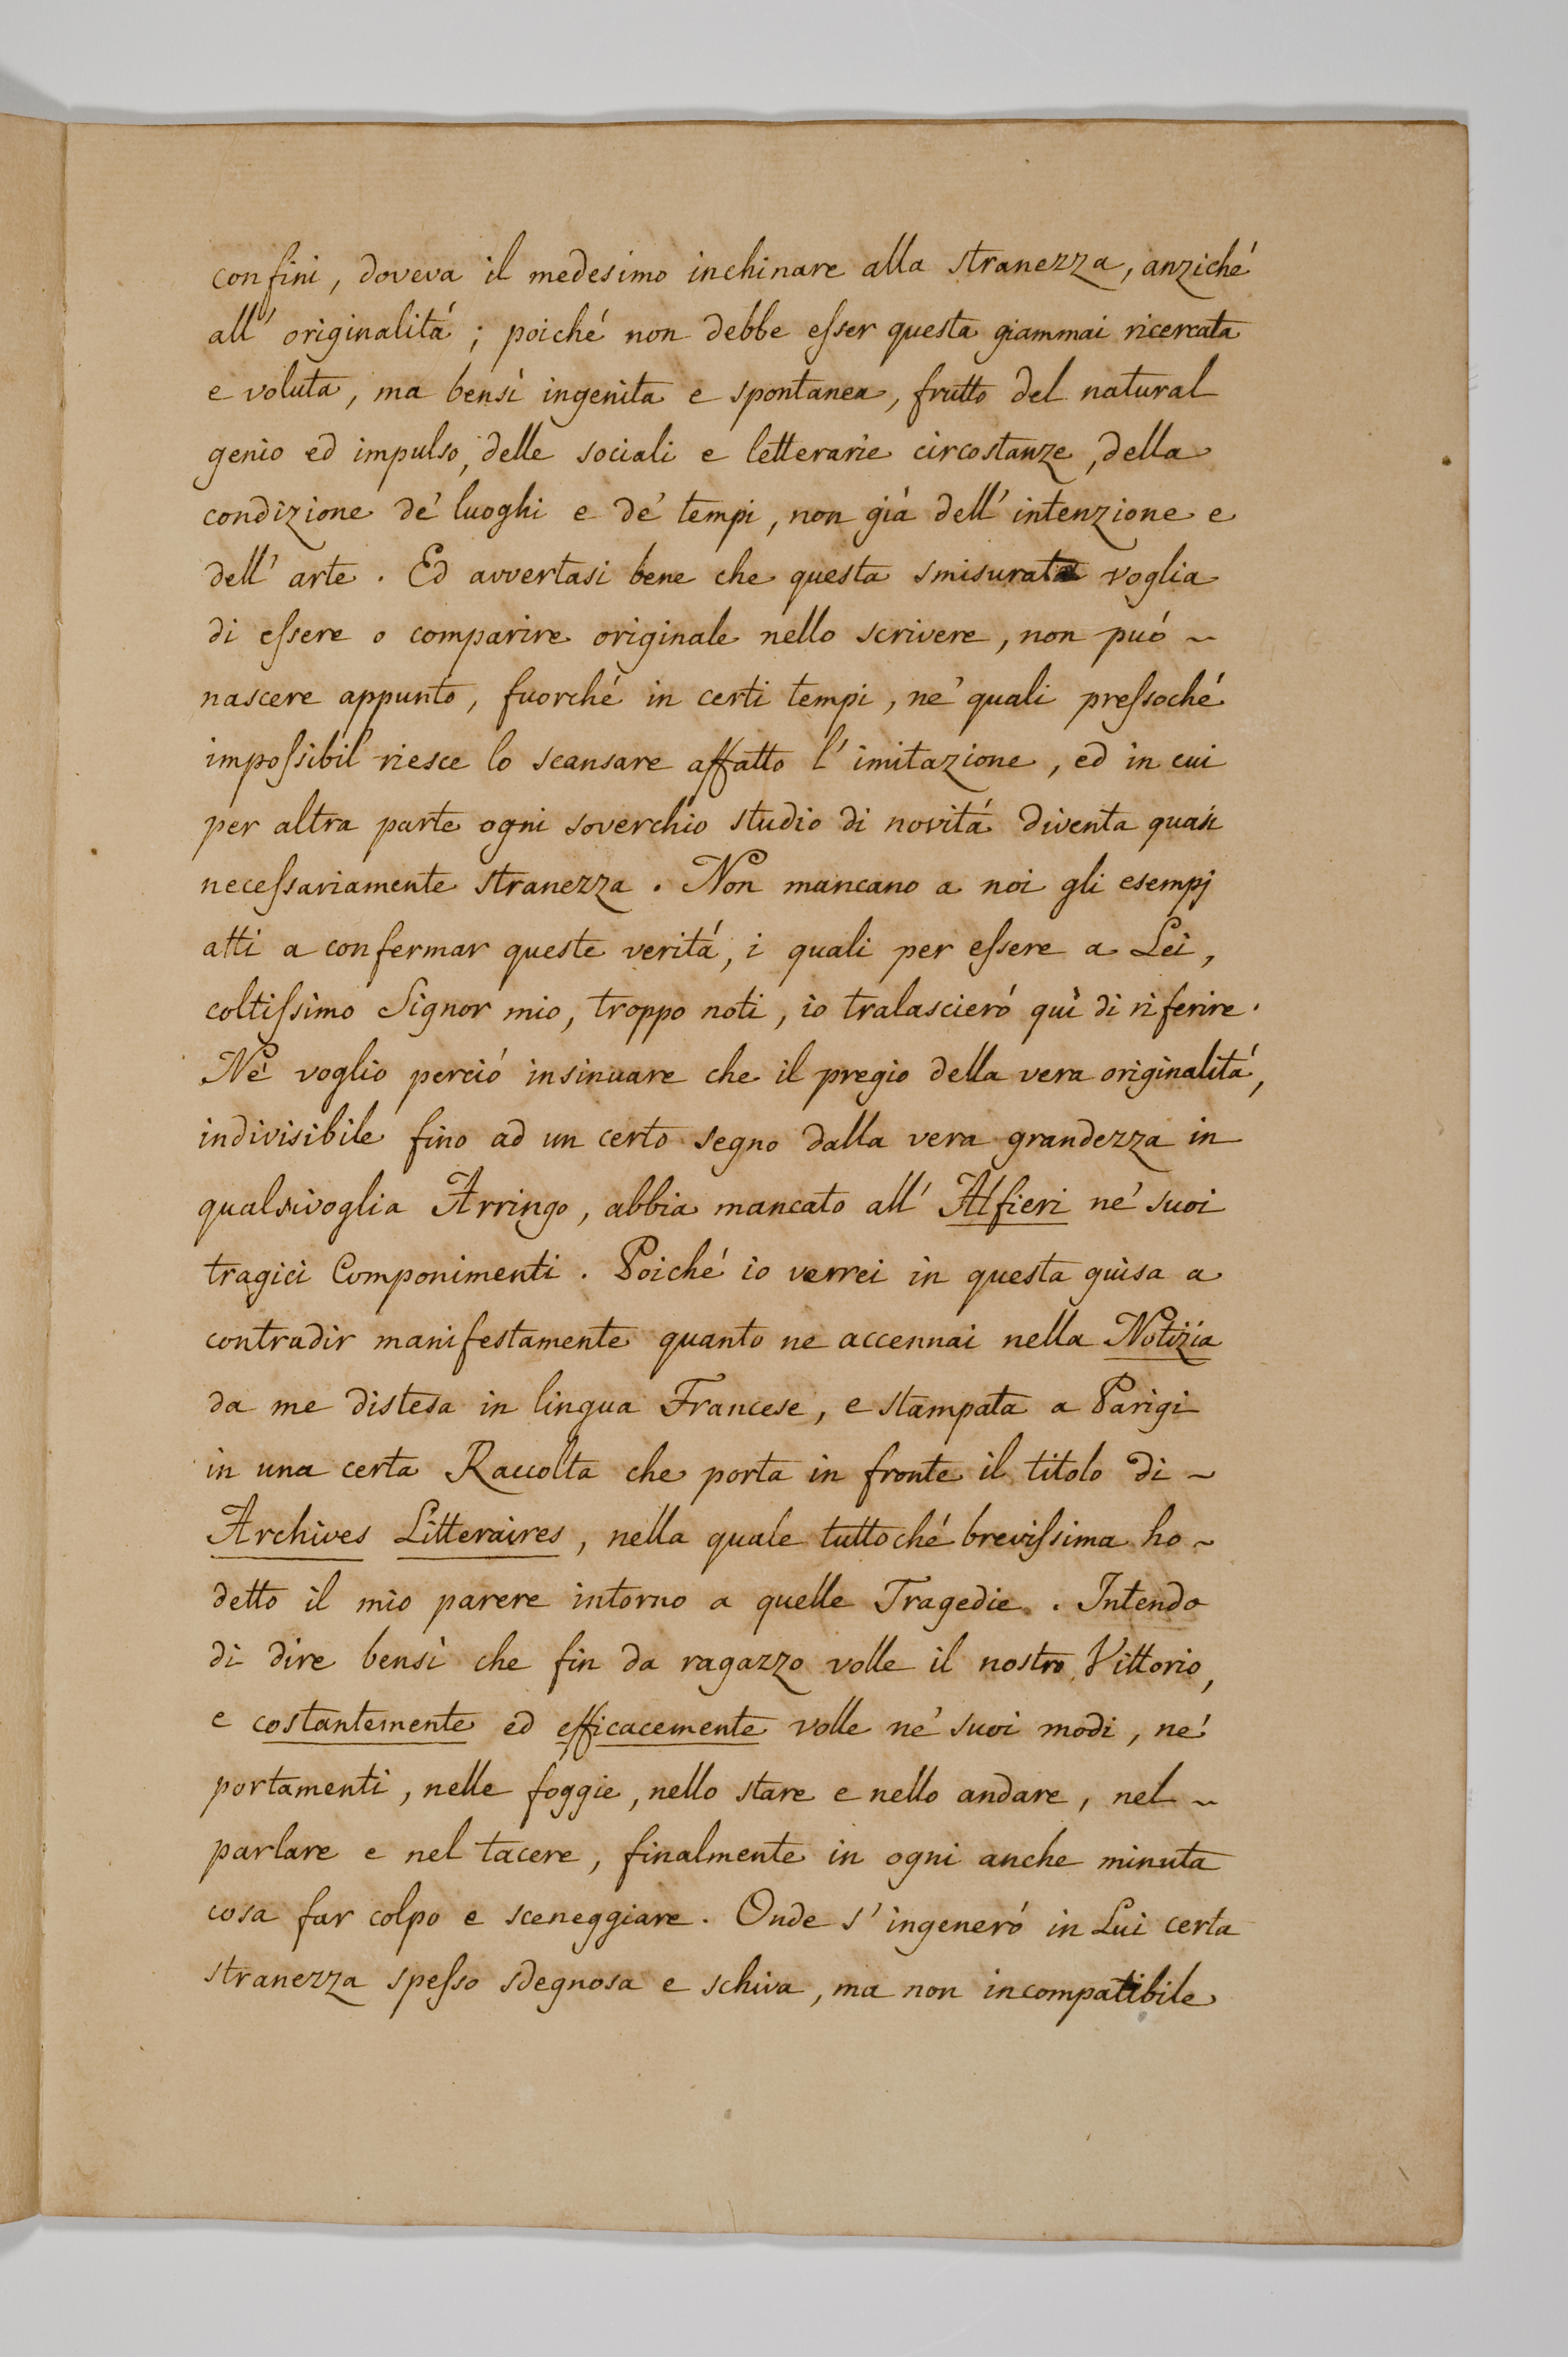 confini, doveva il medesimo inchinare alla stranezza, anziché
all' originalitá; poiché non debbe eſser questa giammai ricercata
e voluta, ma bensì ingenita e spontanea, frutto del natural
genio ed impulso, delle sociali e letterarie circostanze, della
condizione de' luoghi e de' tempi, non giá dell' intenzione e
dell' arte. Ed avvertasi bene che questa smisurata voglia
di eſsere o comparire originale nello scrivere, non puó ~
nascere appunto, fuorché in certi tempi, ne' quali preſsoché
impoſsibil riesce lo scansare affatto l' imitazione, ed in cui
per altra parte ogni soverchio studio di novitá diventa quasi
neceſsariamente stranezza. Non mancano a noi gli esempj
atti a confermar queste veritá, i quali per eſsere a Lei,
coltiſsimo Signor mio, troppo noti, io tralascieró quì di riferire.
Né voglio perció insinuare che il pregio della vera originalitá,
indivisibile fino ad un certo segno dalla vera grandezza in
qualsivoglia Arringo, abbia mancato all' Alfieri ne' suoi
tragici Componimenti. Poiché io verrei in questa guisa a
contradir manifestamente quanto ne accennai nella Notizia
da me distesa in lingua Francese, e stampata a Parigi
in una certa Raccolta che porta in fronte il titolo di ~
Archives Litteraires, nella quale tuttoché breviſsima ho ~
detto il mio parere intorno a quelle Tragedie. Intendo
di dire bensì che fin da ragazzo volle il nostro Vittorio,
e costantemente ed efficacemente volle ne' suoi modi, ne'
portamenti, nelle foggie, nello stare e nello andare, nel ~
parlare e nel tacere, finalmente in ogni anche minuta
cosa far colpo e sceneggiare. Onde s' ingeneró in Lui certa
stranezza speſso sdegnosa e schiva, ma non incompatibile